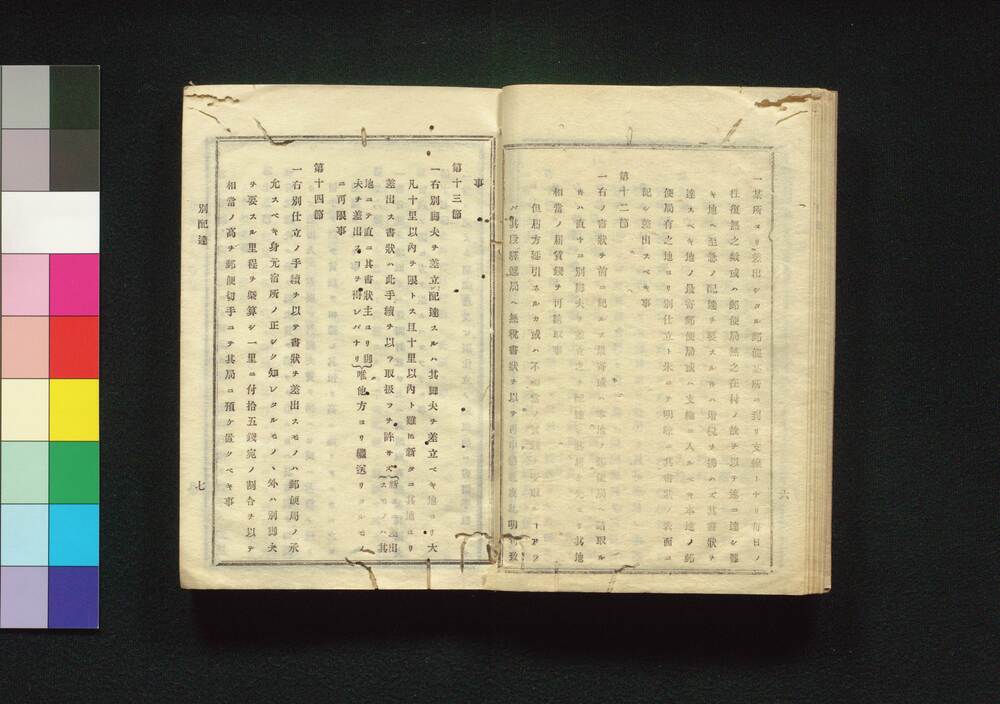 一某所ヨリ差出シタル郵便某所ニ到リ支線トナリ毎日ノ
往復無之歟或ハ郵便局無之在村ノ故ヲ以テ速ニ達シ難
キ地ヘ至急ノ配達ヲ要スルモノハ増税ヲ拂ハズ其書狀ヲ
達スベキ地ノ最寄郵便局或ハ支線ニ入ルベキ本地ノ郵
便局有之地ヨリ別仕立ト朱ニテ明瞭ニ其書狀ノ表面ニ
記シ差出スベキ事
第十二節
一右ノ書狀ヲ前ニ記ルス最寄或ハ本地ノ郵便局ヘ請取ル
キハ直チニ別脚夫ヲ差立之ヲ配達シ其届ケ先ヨリ其地
相當ノ届賃錢ヲ可請取事
但届方
其段驛遞局ヘ無税書狀ヲ以テ
六
事
第十三節
一右別脚夫ヲ差立配達スルハ其脚夫ヲ差立ベキ地ヨリ大
凡十里以內ヲ限トス且十里以內ト雖ㇳ新タニ其地ヨリ
差出ス書狀ハ此手續ヲ以テ取扱フヲ許サズ新タニ差出スモノハ其
地ニテ直ニ其書狀主ヨリ脚夫ヲ差出スコヲ得レバナリ唯他方ヨリ繼送リコルモノ
ニ可限事
第十四節
一右別仕立ノ手續ヲ以テ書狀ヲ差出スモノハ郵便局ノ示
允スベキ身元宿所ノ正シク知レタルモノヽ外ハ別脚夫
ヲ要スル里程ヲ槩算シ一里ニ付拾五錢宛ノ割合ヲ以テ
相當ノ高ヲ郵便切手ニテ其局ニ預ケ置クベキ事
別配達
七